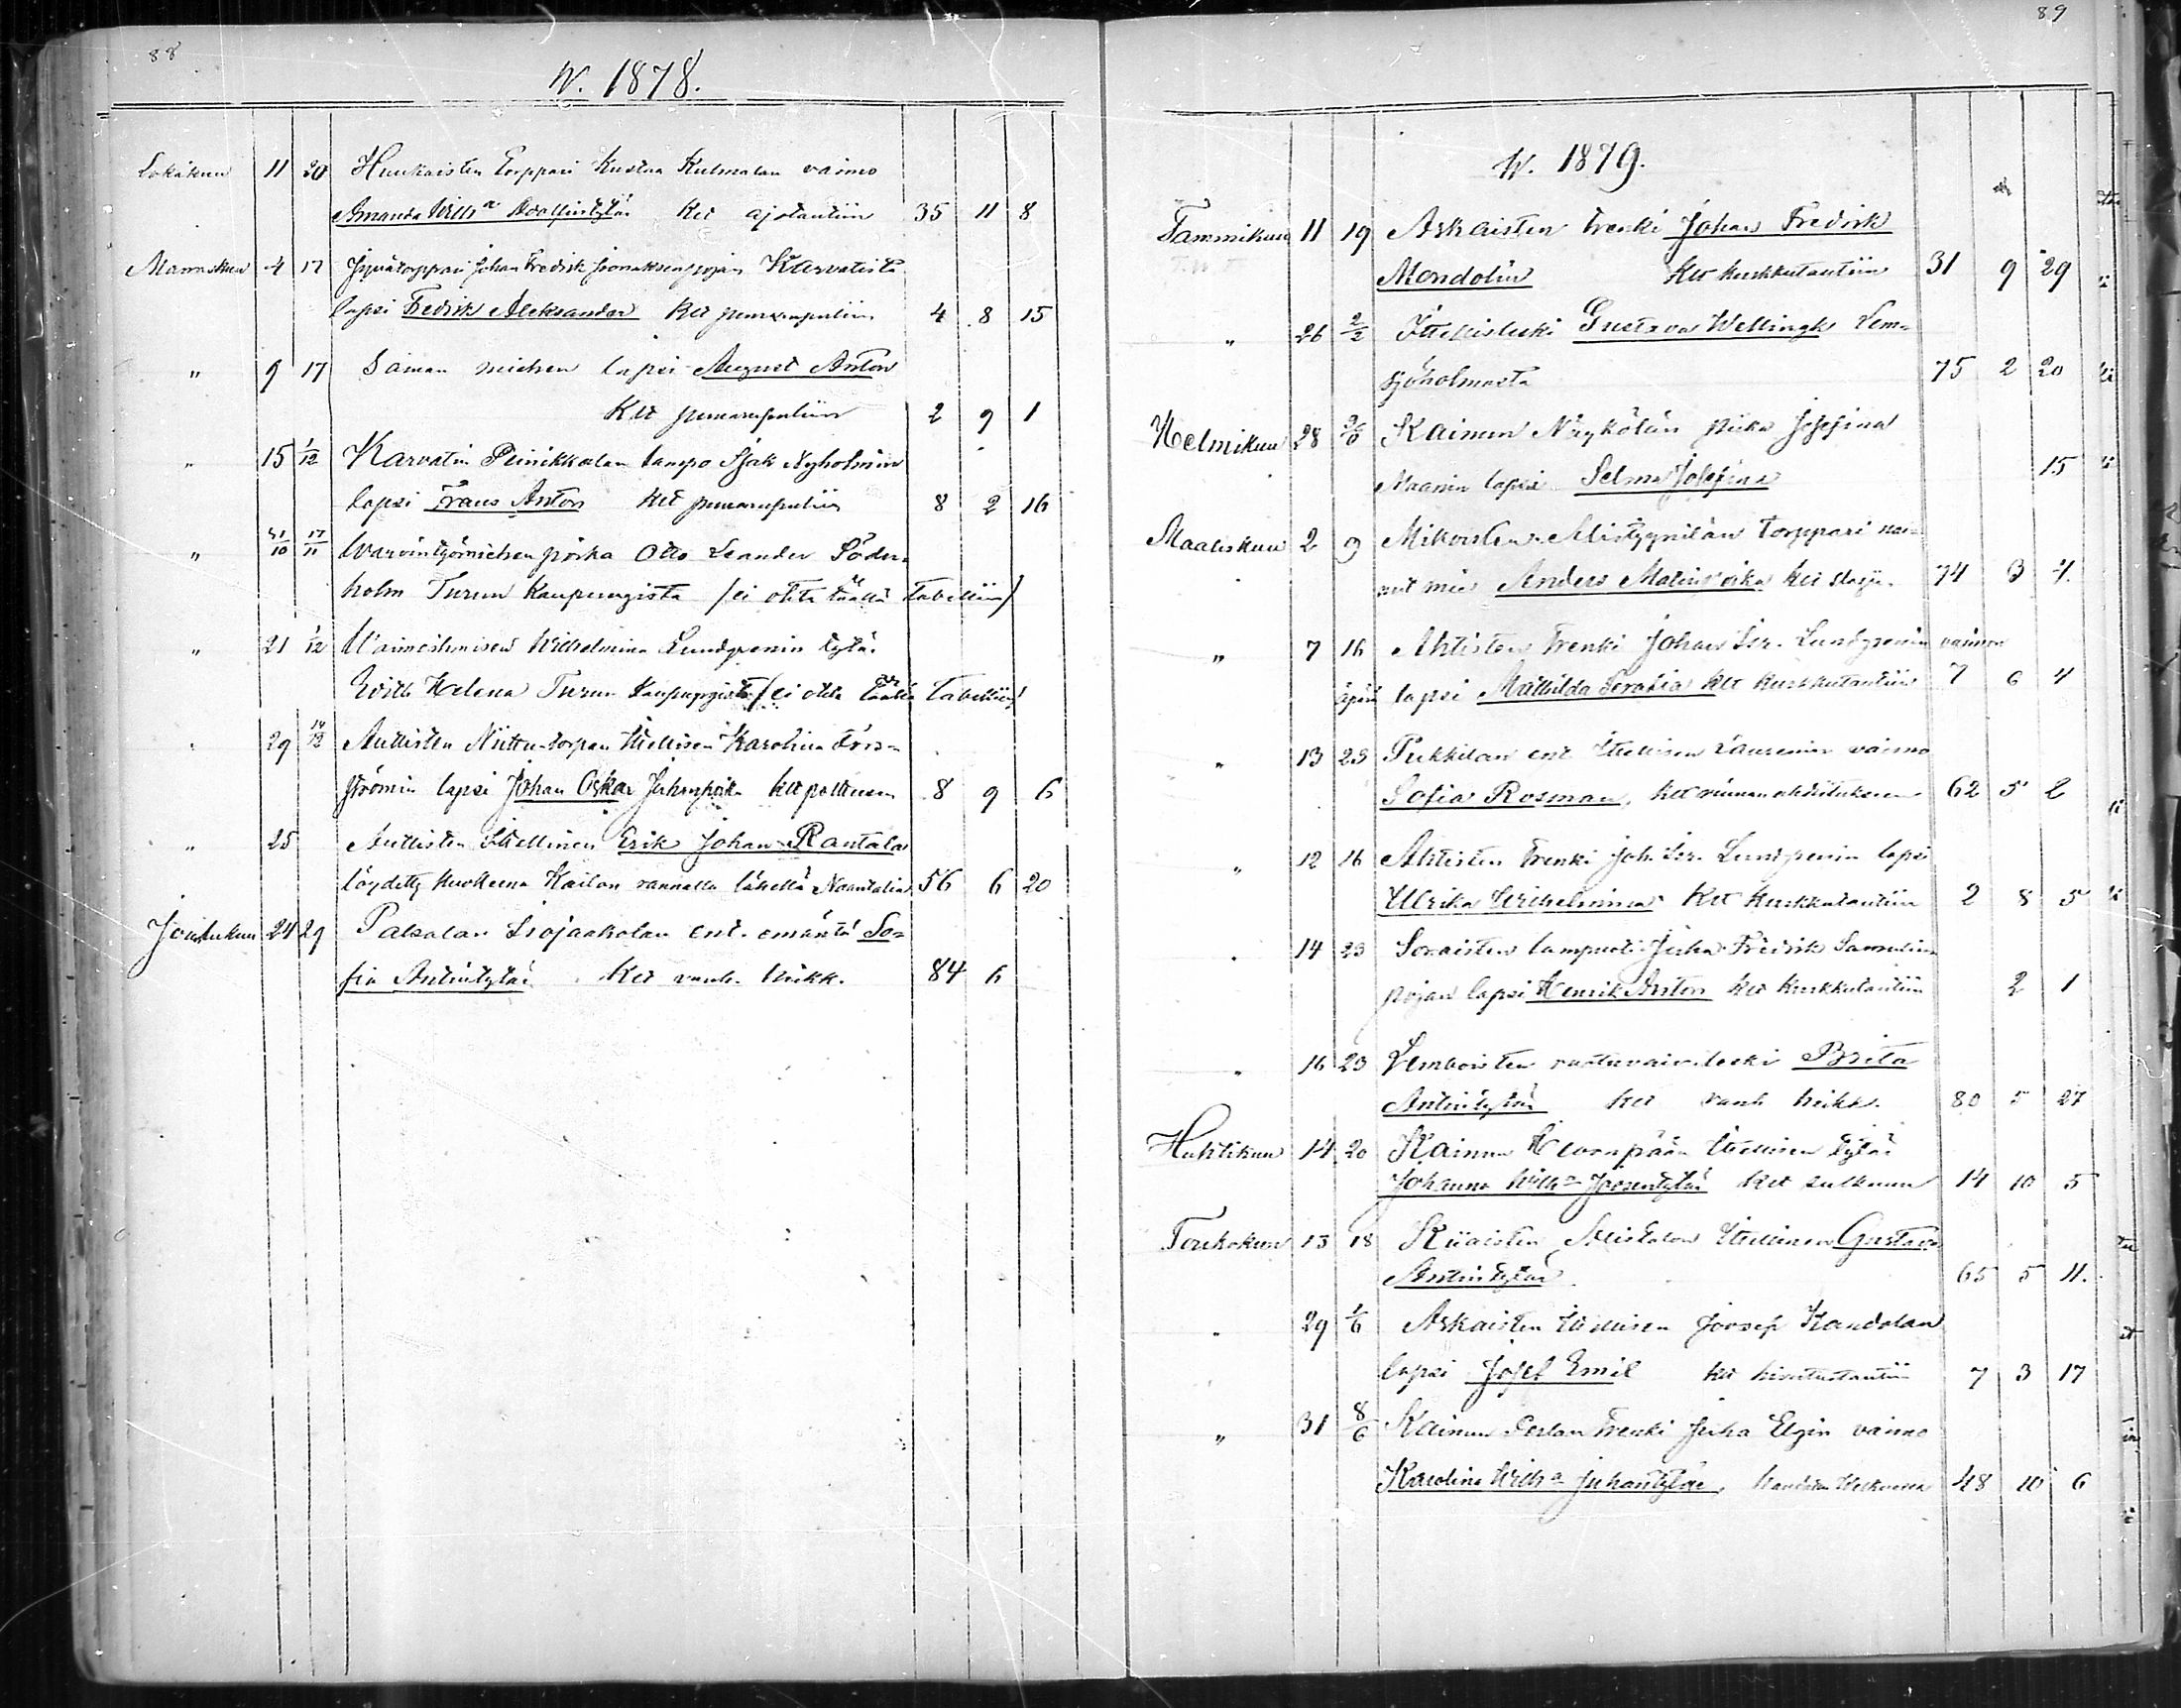 88
W. 1878.
Lokakuu 11 20 Huukaisten torppari Kustaa Kulmalan vaimo
Amanda Wilha Adolfintytär klt ajotautiin 35 11 8
Marraskuu 4 17 Johan Fredrik Joonaksenpojan Karvatista
lapsi Fredrik Aleksander klt punarupuliin 4 8 15
" 9 17 Saman miehen lapsi August Anton
klt punarupuliin 2 9 1
" 15 1/12 Karvatin Pinikkalan lampo Isak Nyholmin
lapsi Frans Anton klt punarupuliin 8 2 16
" 31/10 17/11 Warvintyömiehen poika Otto Leander Söder-
holm Turun Kaupungista (ei oteta täältä tabelliin)
" 21 1/12 Waimoihmisen Wilhelmina Lundgrenin tytär
Edith Helena Turun Kaupungista (ei oteta täältä tabelliin)
" 29 14/12 Autisten Niittu-torpan itsellisen Karolina Fors-
strömin lapsi Johan Oskar Juhanpoika klt polttoon 8 9 6
" 25 Autisten Itsellinen Erik Johan Rantala
löydetty kuolleena Kailon rannalla lähellä Naantalia 56 6 20
Joulukuu 24 29 Palsalan Isojaakolan ent. emäntä So-
fia Antintytär klt vanh. heikk. 84 6
89
W. 1879.
Tammikuu 11 19 Askaisten trenki Johan Fredrik
Mondolin klt kurkkutautiin 31 9 29
" 26 2/2 Itsellisleski Gustava Wellingk Lem-
sjöholmasta 75 2 20
Helmikuu 28 Kainun Näykölän piika Josefina
Maanin lapsi Selma Josefina 15
Maaliskuu 2 9 torppari
mies Anders Matinpoika klt 74 3 4.
" 7 16 Ahtisten trenki Johan Isr. Lundgrenin vaimon
äpärä lapsi Mathilda Serafia klt kurkkutautiin 7 6 4
" 13 23 Pukkilan ent. itsellisen Laurenin vaimo
Sofia Rosman, klt rinnan ahdistukseen 62 5 2
" 12 16 Ahtisten trenki Joh. Isr. Lundgrenin lapsi
Ulrika Wilhelmina klt kurkkutautiin 2 8 5
" 14 23 Soraisten lampuoti Juha Fredrik Samulin
pojan lapsi Henrik Anton klt kurkkutautiin 2 1
" 16 23 Lemboisten ruotuvaiv. leski Brita
Antintytär klt vanh heikk. 80 5 27
Huhtikuu 14 20 Kainun itsellisen tytär
Johanna Wilha Joosentytär klt 14 10 5
Toukokuu 13 18 Riiaisten Alistalon Itsellinen Gustava
Antintytär 65 5 11.
" 29 1/6 Askaisten itsellisen Joosep Kandolan
lapsi Josef Emil klt 7 3 17
" 31 8/6 Kainun Perlan trenki Juha Elgin vaimo
Karolina Wilha Juhantytär, 48 10 6